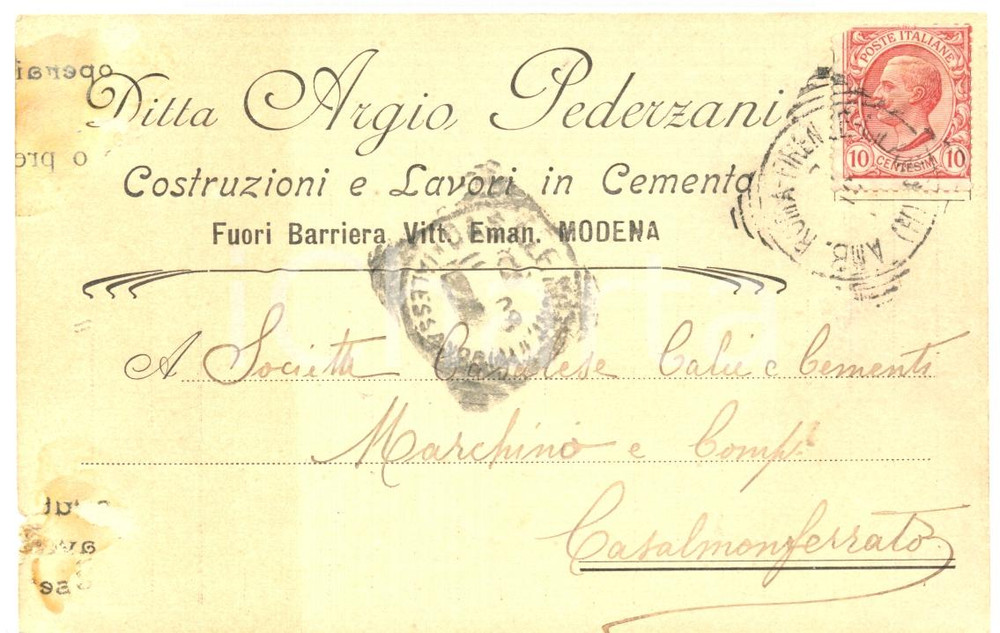 POSTE ITALIANE
10 CENTESIMI 10
Ditta Argio Pederzani
Costruzioni e Lavori in Cemento
Fuori Barriera Vitt. Eman. MODENA
AMB. ROMA
A Società Casalese Calci e Cementi
Marchino e Comp.
Casalmonferrato